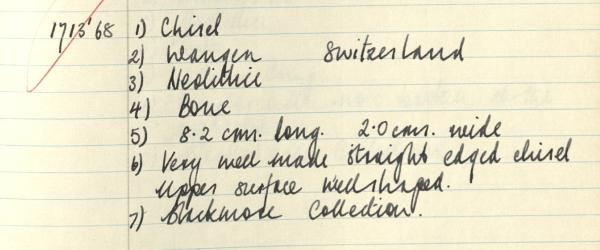 1713'68 1) Chisel
2) Wangen Switzerland
3) Neolithic
4) Bone
5) 8.2 cms. long. 2.0 cms. wide
6) Very well made straight edged chisel
upper surface well shaped.
7) Blackmore Collection.